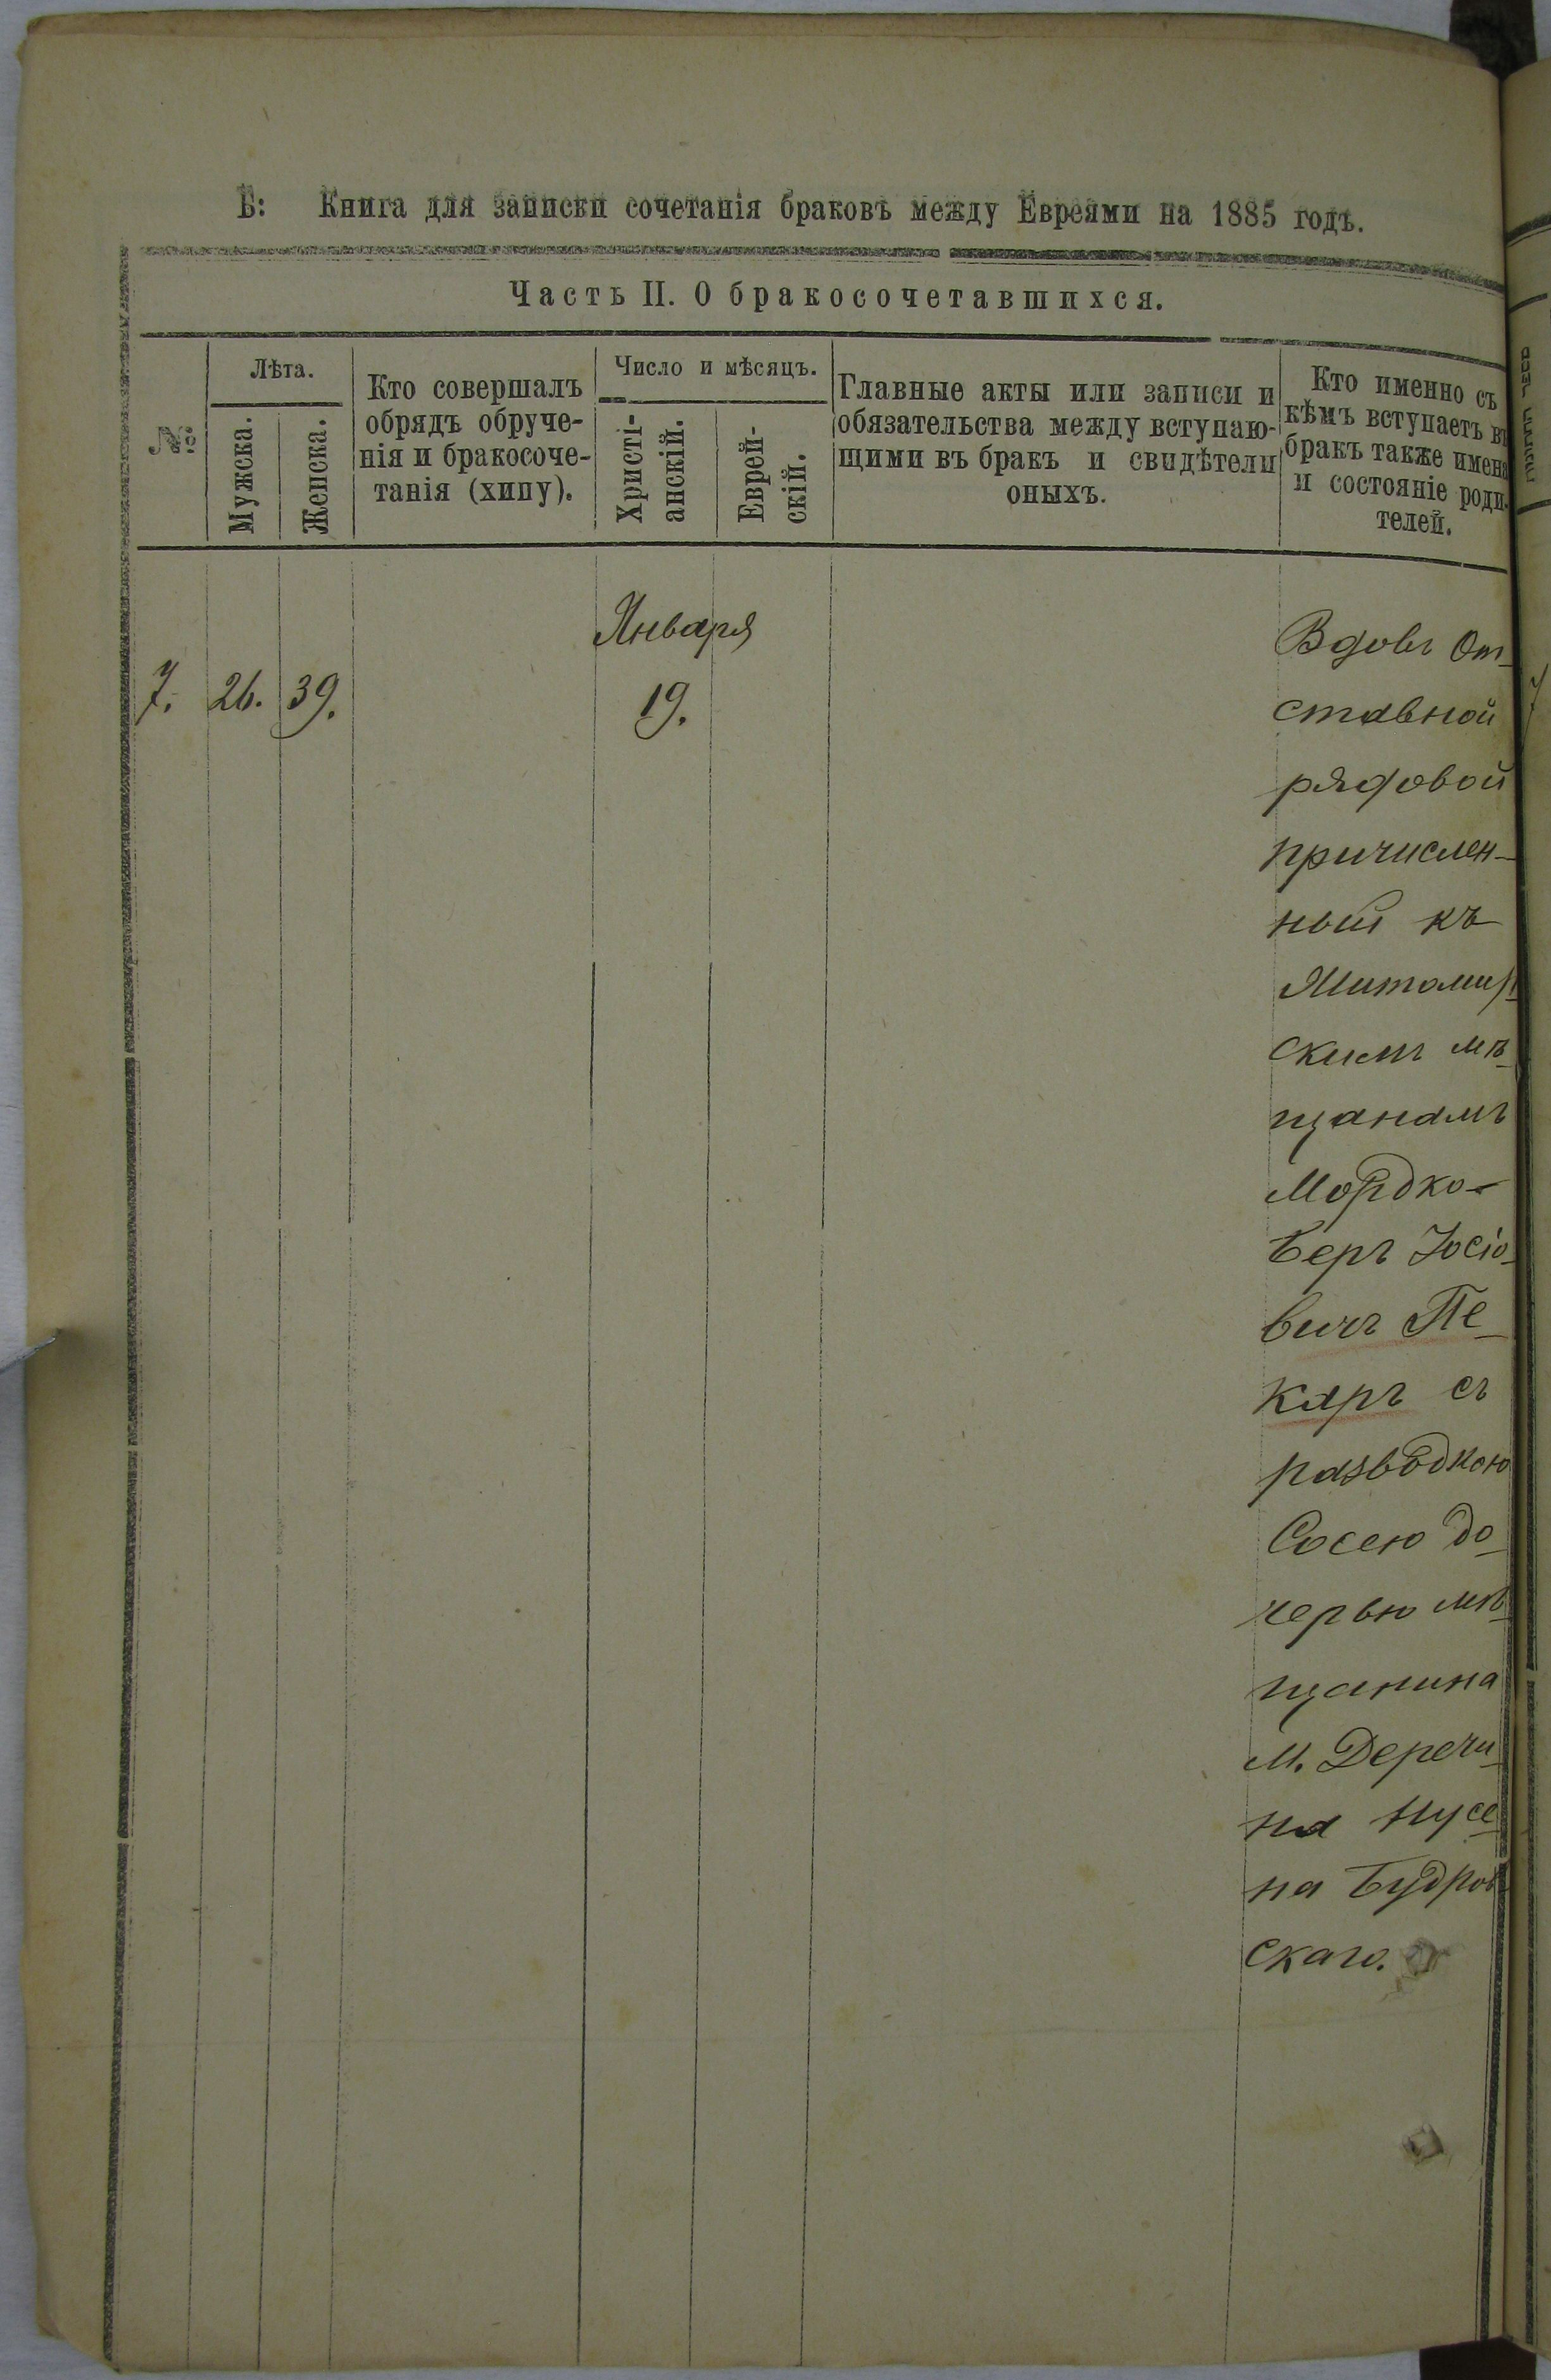 Б: Книга для записки сочетанія браковъ между Евреями на 1885 годъ.
Часть II. О бракосочетавшихся.
№
Лѣта.
Мужска.
Женска.
Кто совершалъ
обрядъ обруче-
нія и бракосоче-
танія (хипу).
Число и мѣсяцъ.
Христі-
анскій.
Еврей-
скій.
Главные акты или записи и
обязательства между вступаю-
щими въ бракъ и свидѣтели
оныхъ.
Кто именно съ
кѣмъ вступаетъ въ
бракъ также имена
и состояніе роди-
телей.
Января
7. 26. 39. 19.
Вдовъ От-
ставной
рядовой
причислен-
ный къ
Житомир-
скимъ мѣ-
щанамъ
Мордко-
Беръ Іосіо-
вичъ Пе-
каръ съ
разводкою
Сосею до-
черью мѣ-
щанина
м. Деречи-
на Нусе-
на Будров-
скаго.